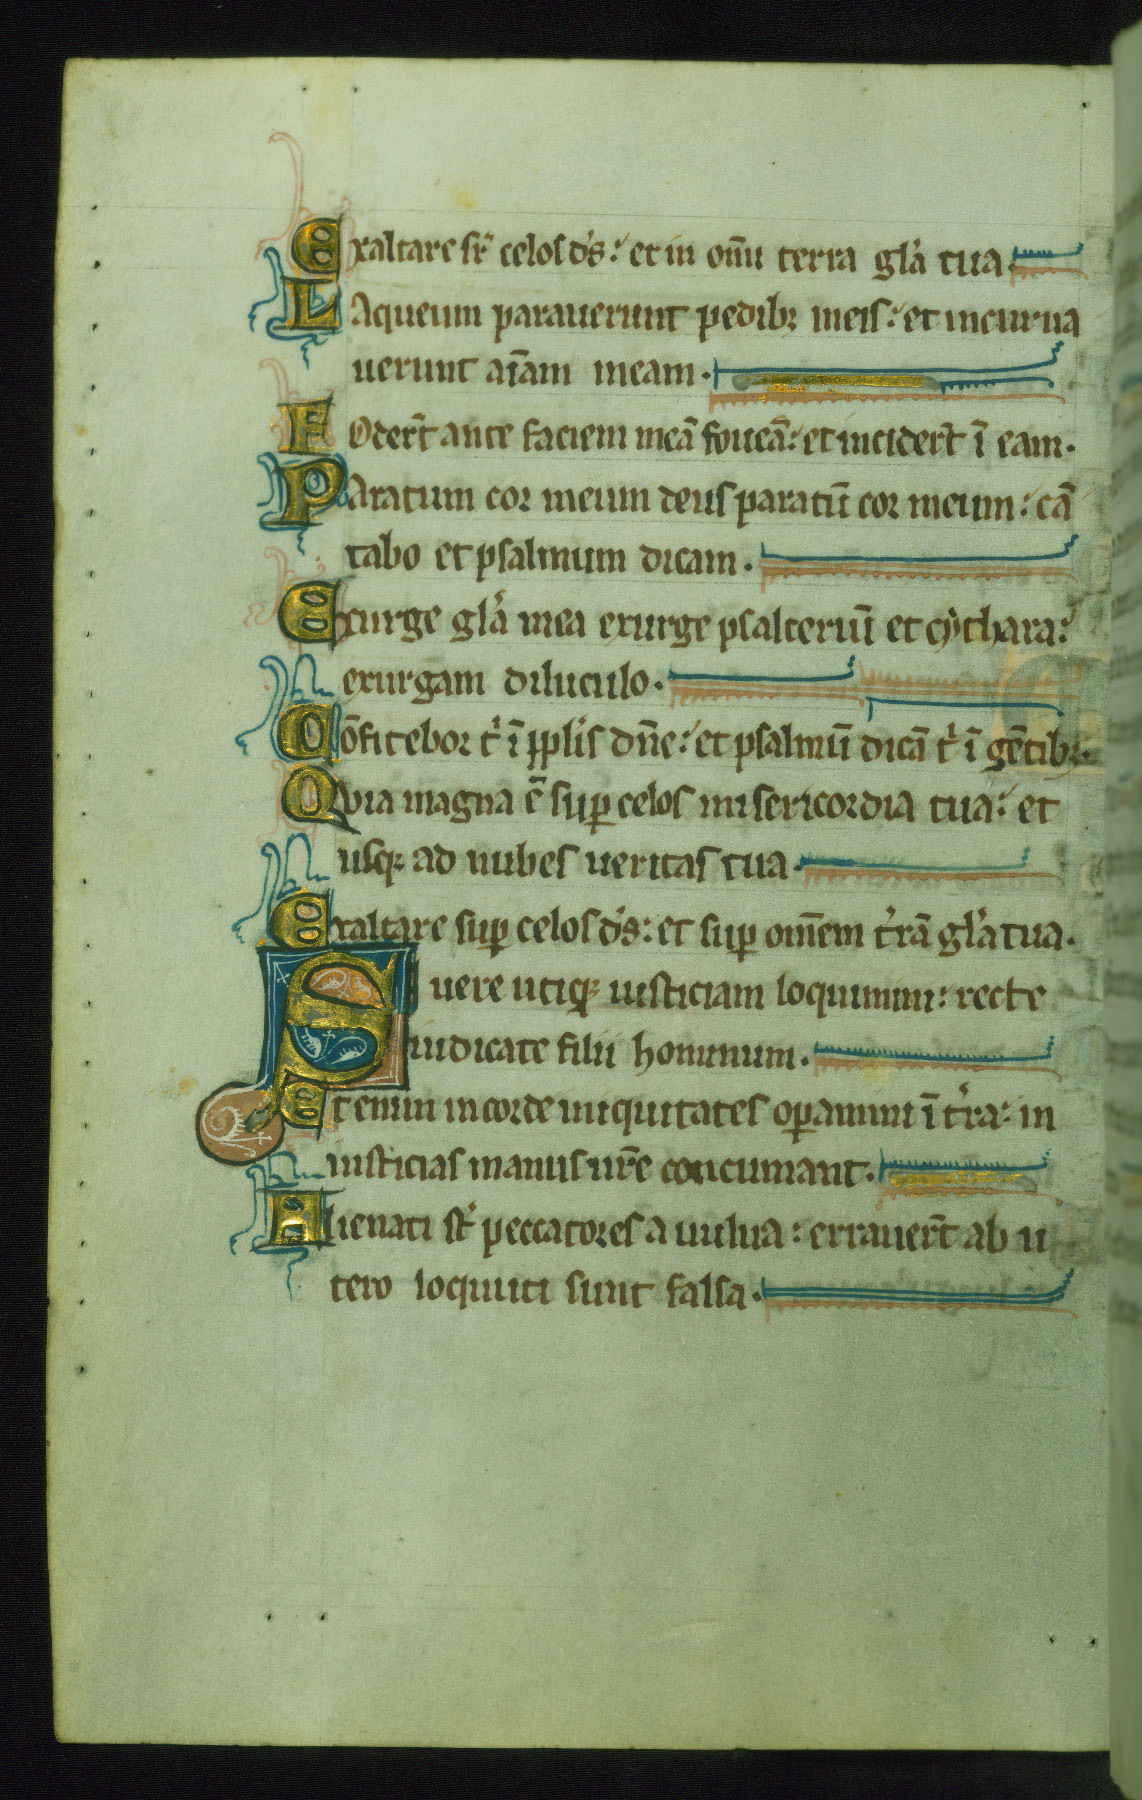 Exaltare sr̄ celos d's: et in om̄i terra gl'a tua
Laqueum parauerunt pedibꝫ meis: et incurua
uerunt aīam meam.
Foder̄t ante faciem meā foueā: et incider̄t ī eam.
Paratum cor meum deus paratū cor meum: cā
tabo et psalmum dicam.
Exurge gl'a mea exurge psalteriū et cythara:
exurgam diluculo.
Cōfitebor t' ī ꝓpl'is dn̄e: et psalmū dicā t' ī gētibꝫ.
Quia magna ē suꝑ celos misericordia tua: et
usqꝫ ad nubes ueritas tua.
Exaltare suꝑ celos d's: et suꝑ om̄em t'rā gl'a tua.
Si uere utiqꝫ iusticiam loquimini: recte
iudicate filii hominum.
Etenim in corde iniquitates oꝑamini ī t'ra: in
iusticias manus ur̄e concinnant.
Alienati st' peccatores a uulua: errauer̄t ab u
tero loquuti sunt falsa.